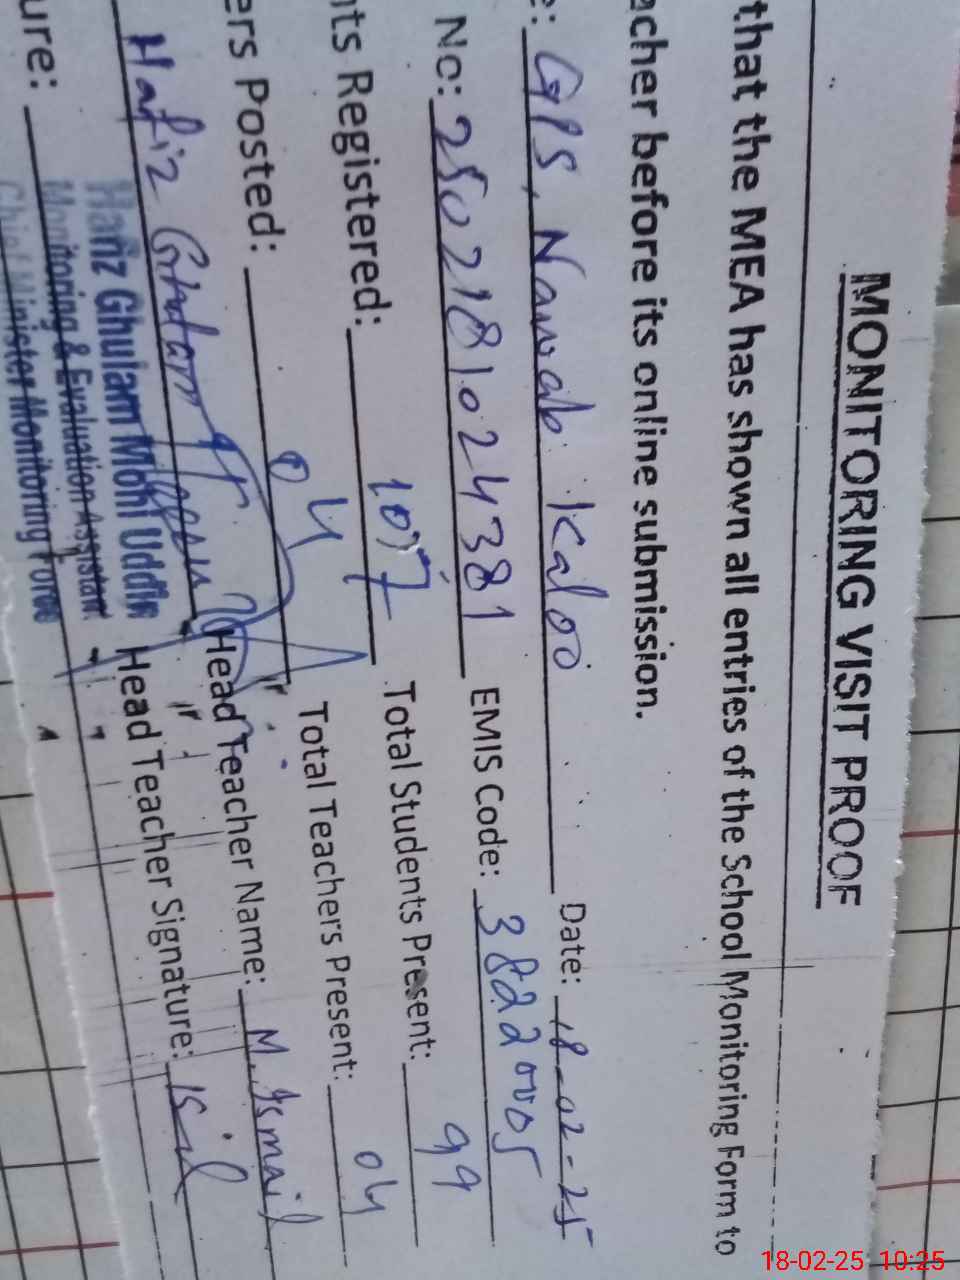 MONITORING VISIT PROOF
that the MEA has shown all entries of the School Monitoring Form to
acher before its online submission.
e: GPS, Nawab Kaloo Date: 18-02-25
No: 2502181024381 EMIS Code: 38220005
nts Registered: 107 Total Students Present: 99
ers Posted: 04 Total Teachers Present: 04
Hafiz Ghulam Head Teacher Name: M. Ismail
Hafiz Ghulam Mohi Uddin
Monitoring & Evaluation Assistant
Chief Minister Monitoring Force
ure: Head Teacher Signature:
18-02-25 10:25